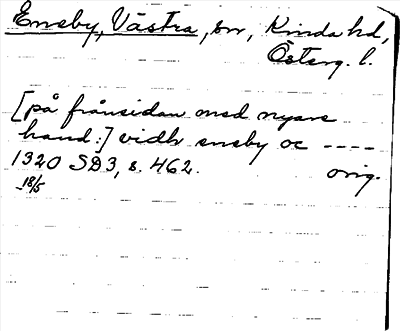 Eneby, Västra, sn, Kinda hd,
Österg. l.
[på frånsidan med nyare
hand:] vidh eneby oc ----
1320 SD3, s. 462. orig.
18/5